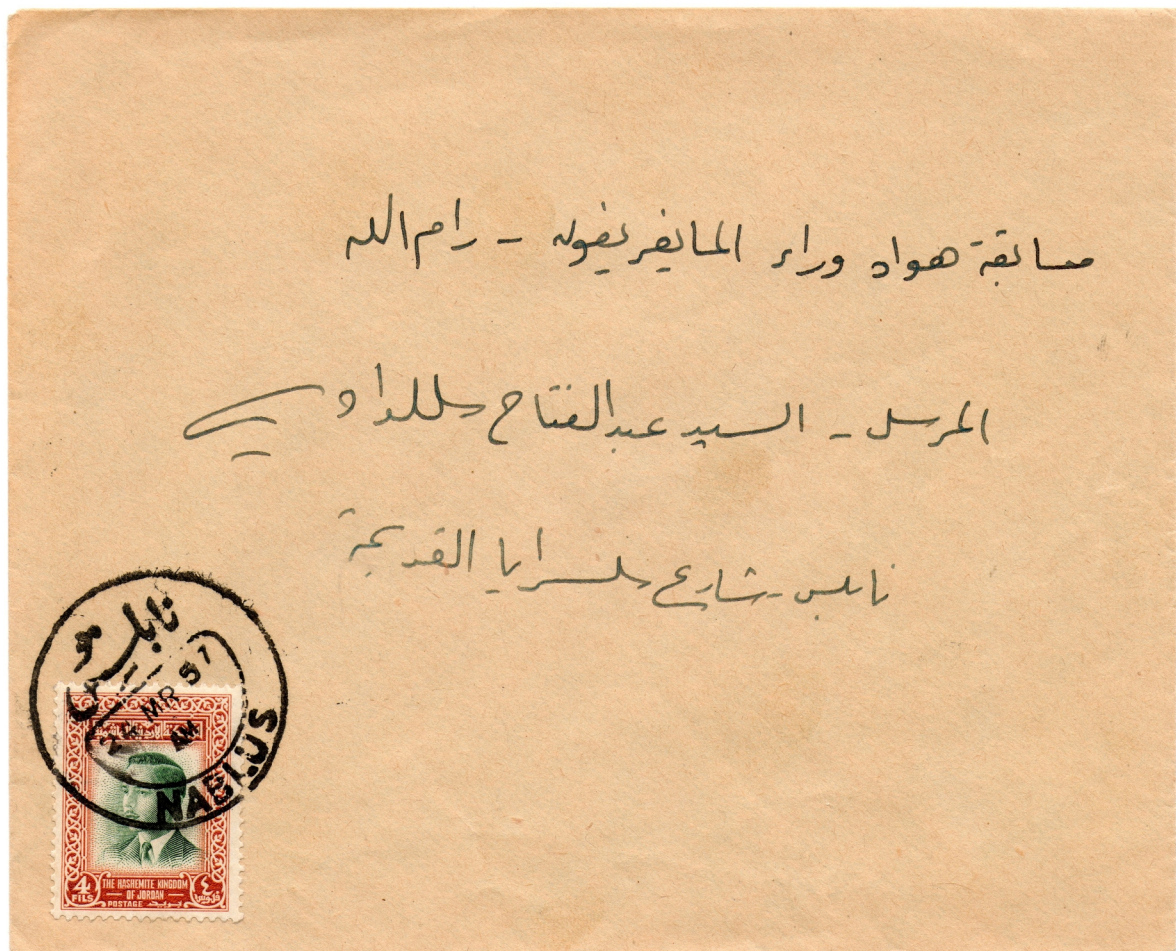 مسابقة هواة وراء المايفريفون - رام الله
المرسل - السيد عبدالفتاح
نابلس - شارع السرايا القديمة
نابلس
MR 57
AM
NABLUS
4
FILS
THE HASHEMITE KINGDOM
OF JORDAN
POSTAGE بريد
٤
فلوس